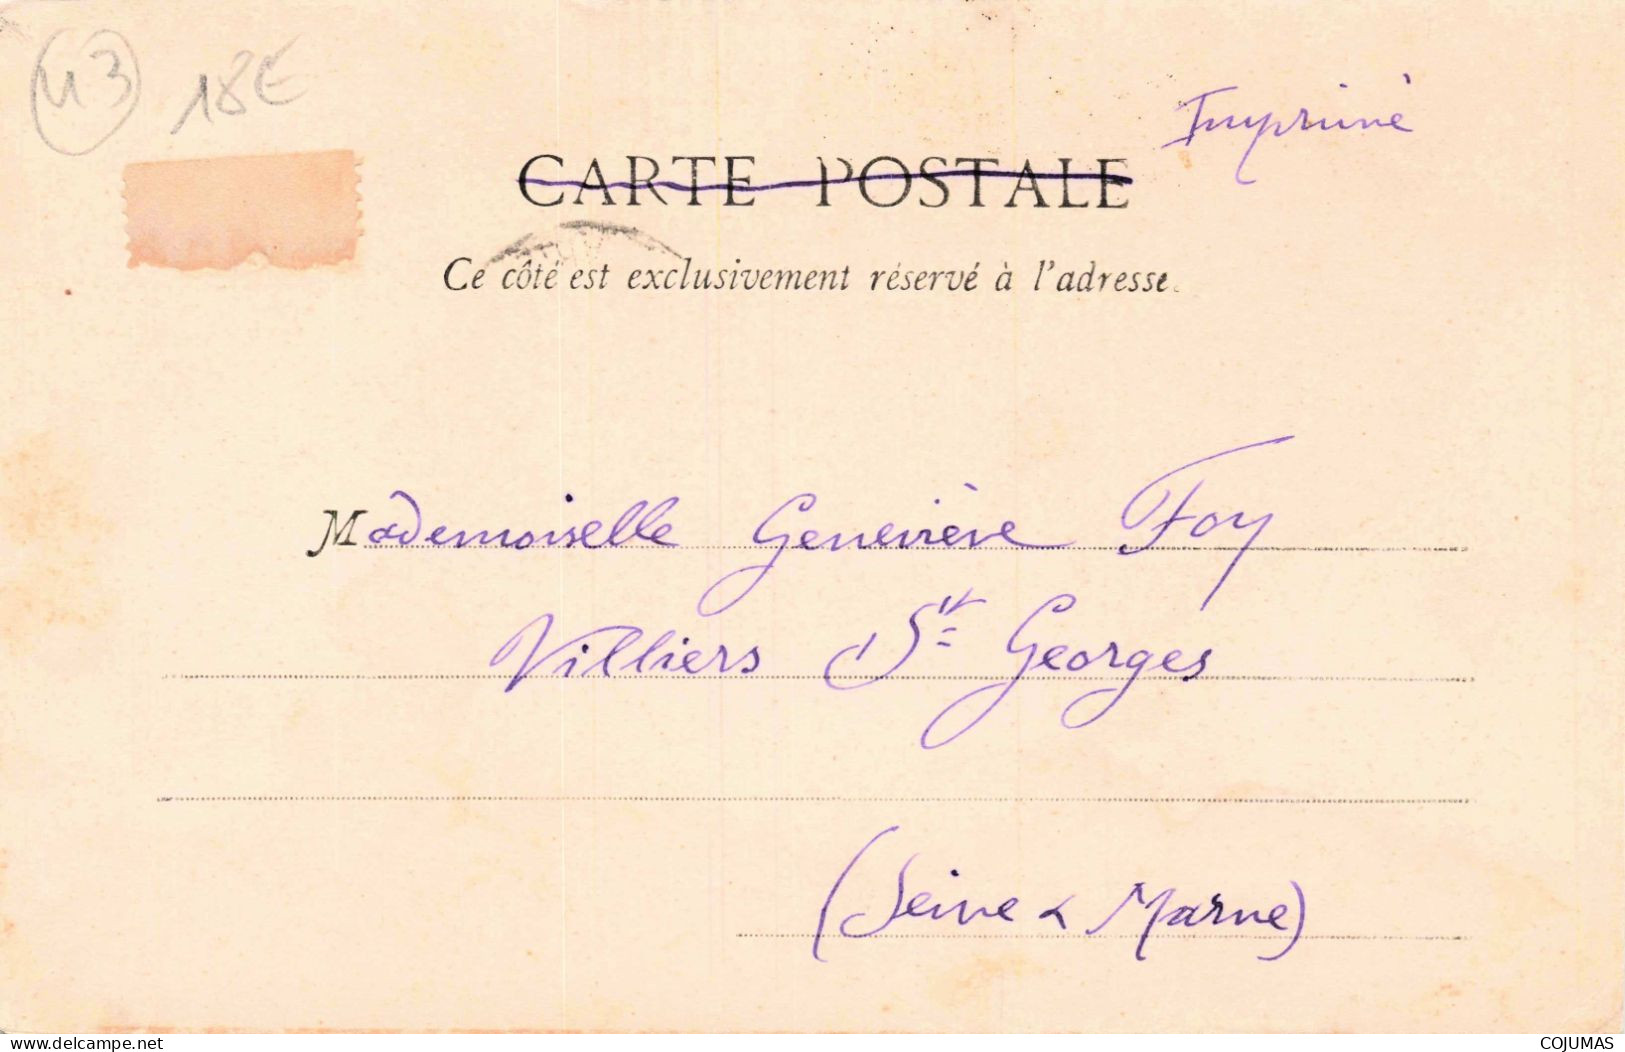 43
18€
Imprimé
CARTE POSTALE
Ce côté est exclusivement réservé à l'adresse.
Mademoiselle Geneviève Foy
Villiers St Georges
(Seine & Marne)
www.delcampe.net
COJUMAS